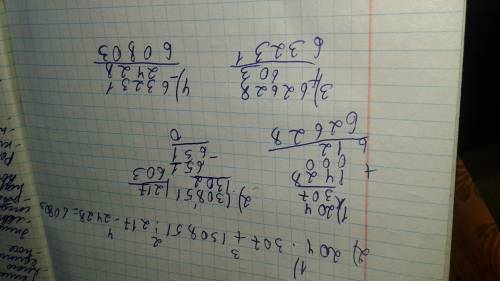 1) 3 2 4
2) 204 · 307 + 130851 : 217 - 2428 = 60803
1) 204
× 307
1428
+ 000
612
62628
2) 130851 | 217
1302 | 603
651
- 651
0
3) 62628
+ 603
63231
4) - 63231
2428
60803